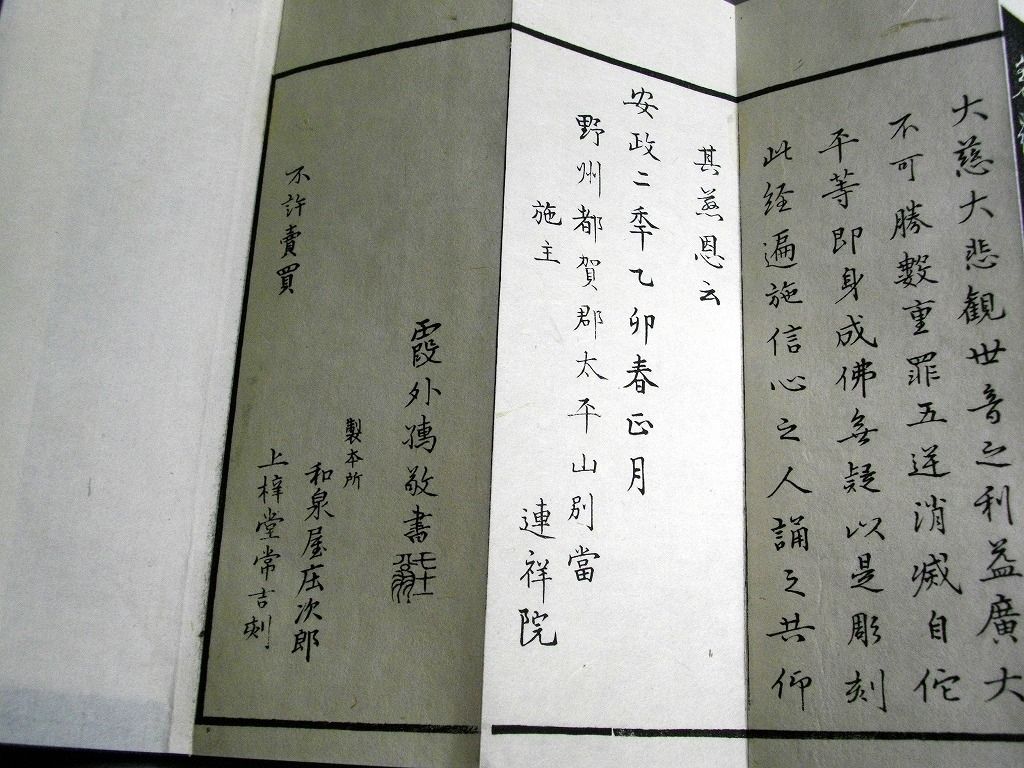 大慈大悲観世音之利益廣大
不可勝數重罪五逆消滅自佗
平等即身成佛無疑以是彫刻
此経遍施信心之人誦之共仰
其慈恩云
安政二季乙卯春正月
野州都賀郡太平山別當
施主
連祥院
霞外 敬書
製本所
和泉屋庄次郎
上梓堂常吉刻
不許賣買